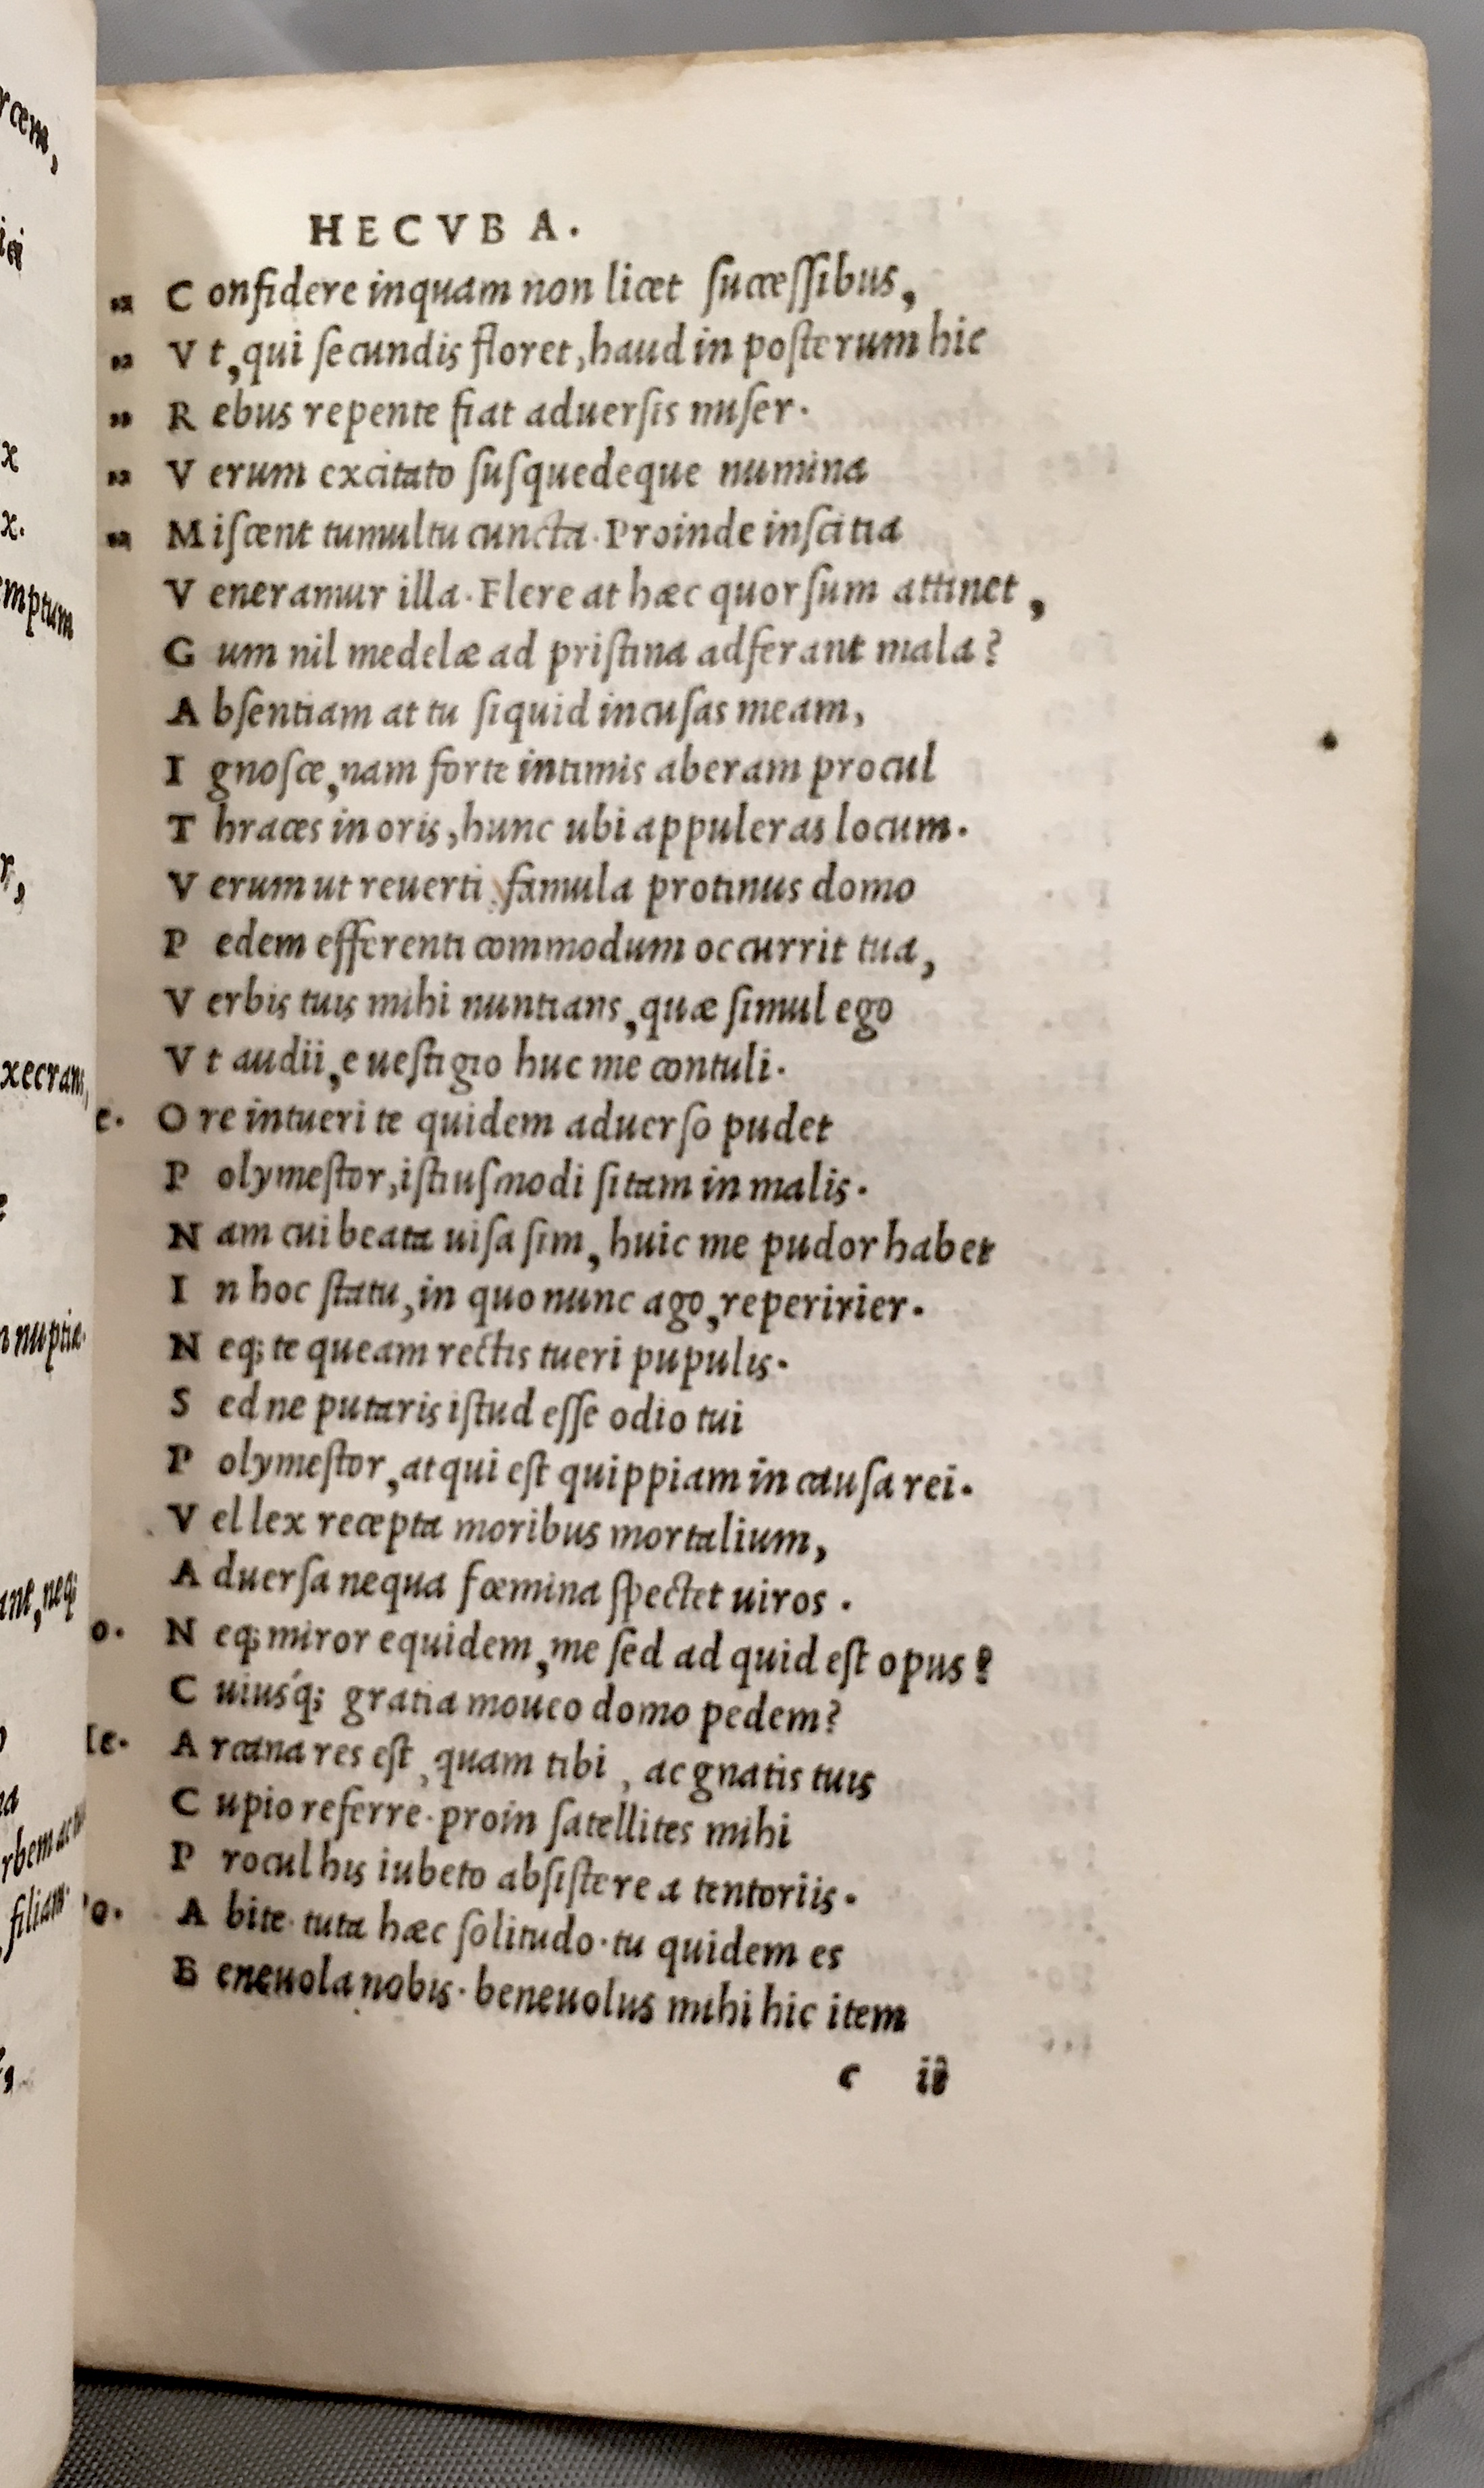 HECVBA.
„ Confidere inquam non licet successibus,
„ Vt, qui secundis floret, haud in posterum hic
„ Rebus repente fiat aduersis miser.
„ Verum excitato susquedeque numina
„ Miscent tumultu cuncta. Proinde inscitia
Veneramur illa. Flere at hæc quorsum attinet,
Gum nil medelæ ad pristina adferant mala?
Absentiam at tu siquid incusas meam,
Ignosce, nam forte intimis aberam procul
Thraces in oris, hunc ubi appuleras locum.
Verum ut reuerti, famula protinus domo
Pedem efferenti commodum occurrit tua,
Verbis tuis mihi nuntians, quæ simul ego
Vt audii, e uestigio huc me contuli.
e. Ore intueri te quidem aduerso pudet
Polymestor, istiusmodi sitam in malis.
Nam cui beata uisa sim, huic me pudor habet
In hoc statu, in quo nunc ago, reperirier.
Neq; te queam rectis tueri pupulis.
Sed ne putaris istud esse odio tui
Polymestor, atqui est quippiam in causa rei.
Vel lex recepta moribus mortalium,
Aduersa nequa fœmina spectet uiros.
o. Neq; miror equidem, me sed ad quid est opus?
Cuiusq́; gratia moueo domo pedem?
He. Arcana res est, quam tibi, ac gnatis tuis
Cupio referre. proin satellites mihi
Procul his iubeto absistere a tentoriis.
o. Abite. tuta hæc solitudo. tu quidem es
Beneuola nobis. beneuolus mihi hic item
c ii